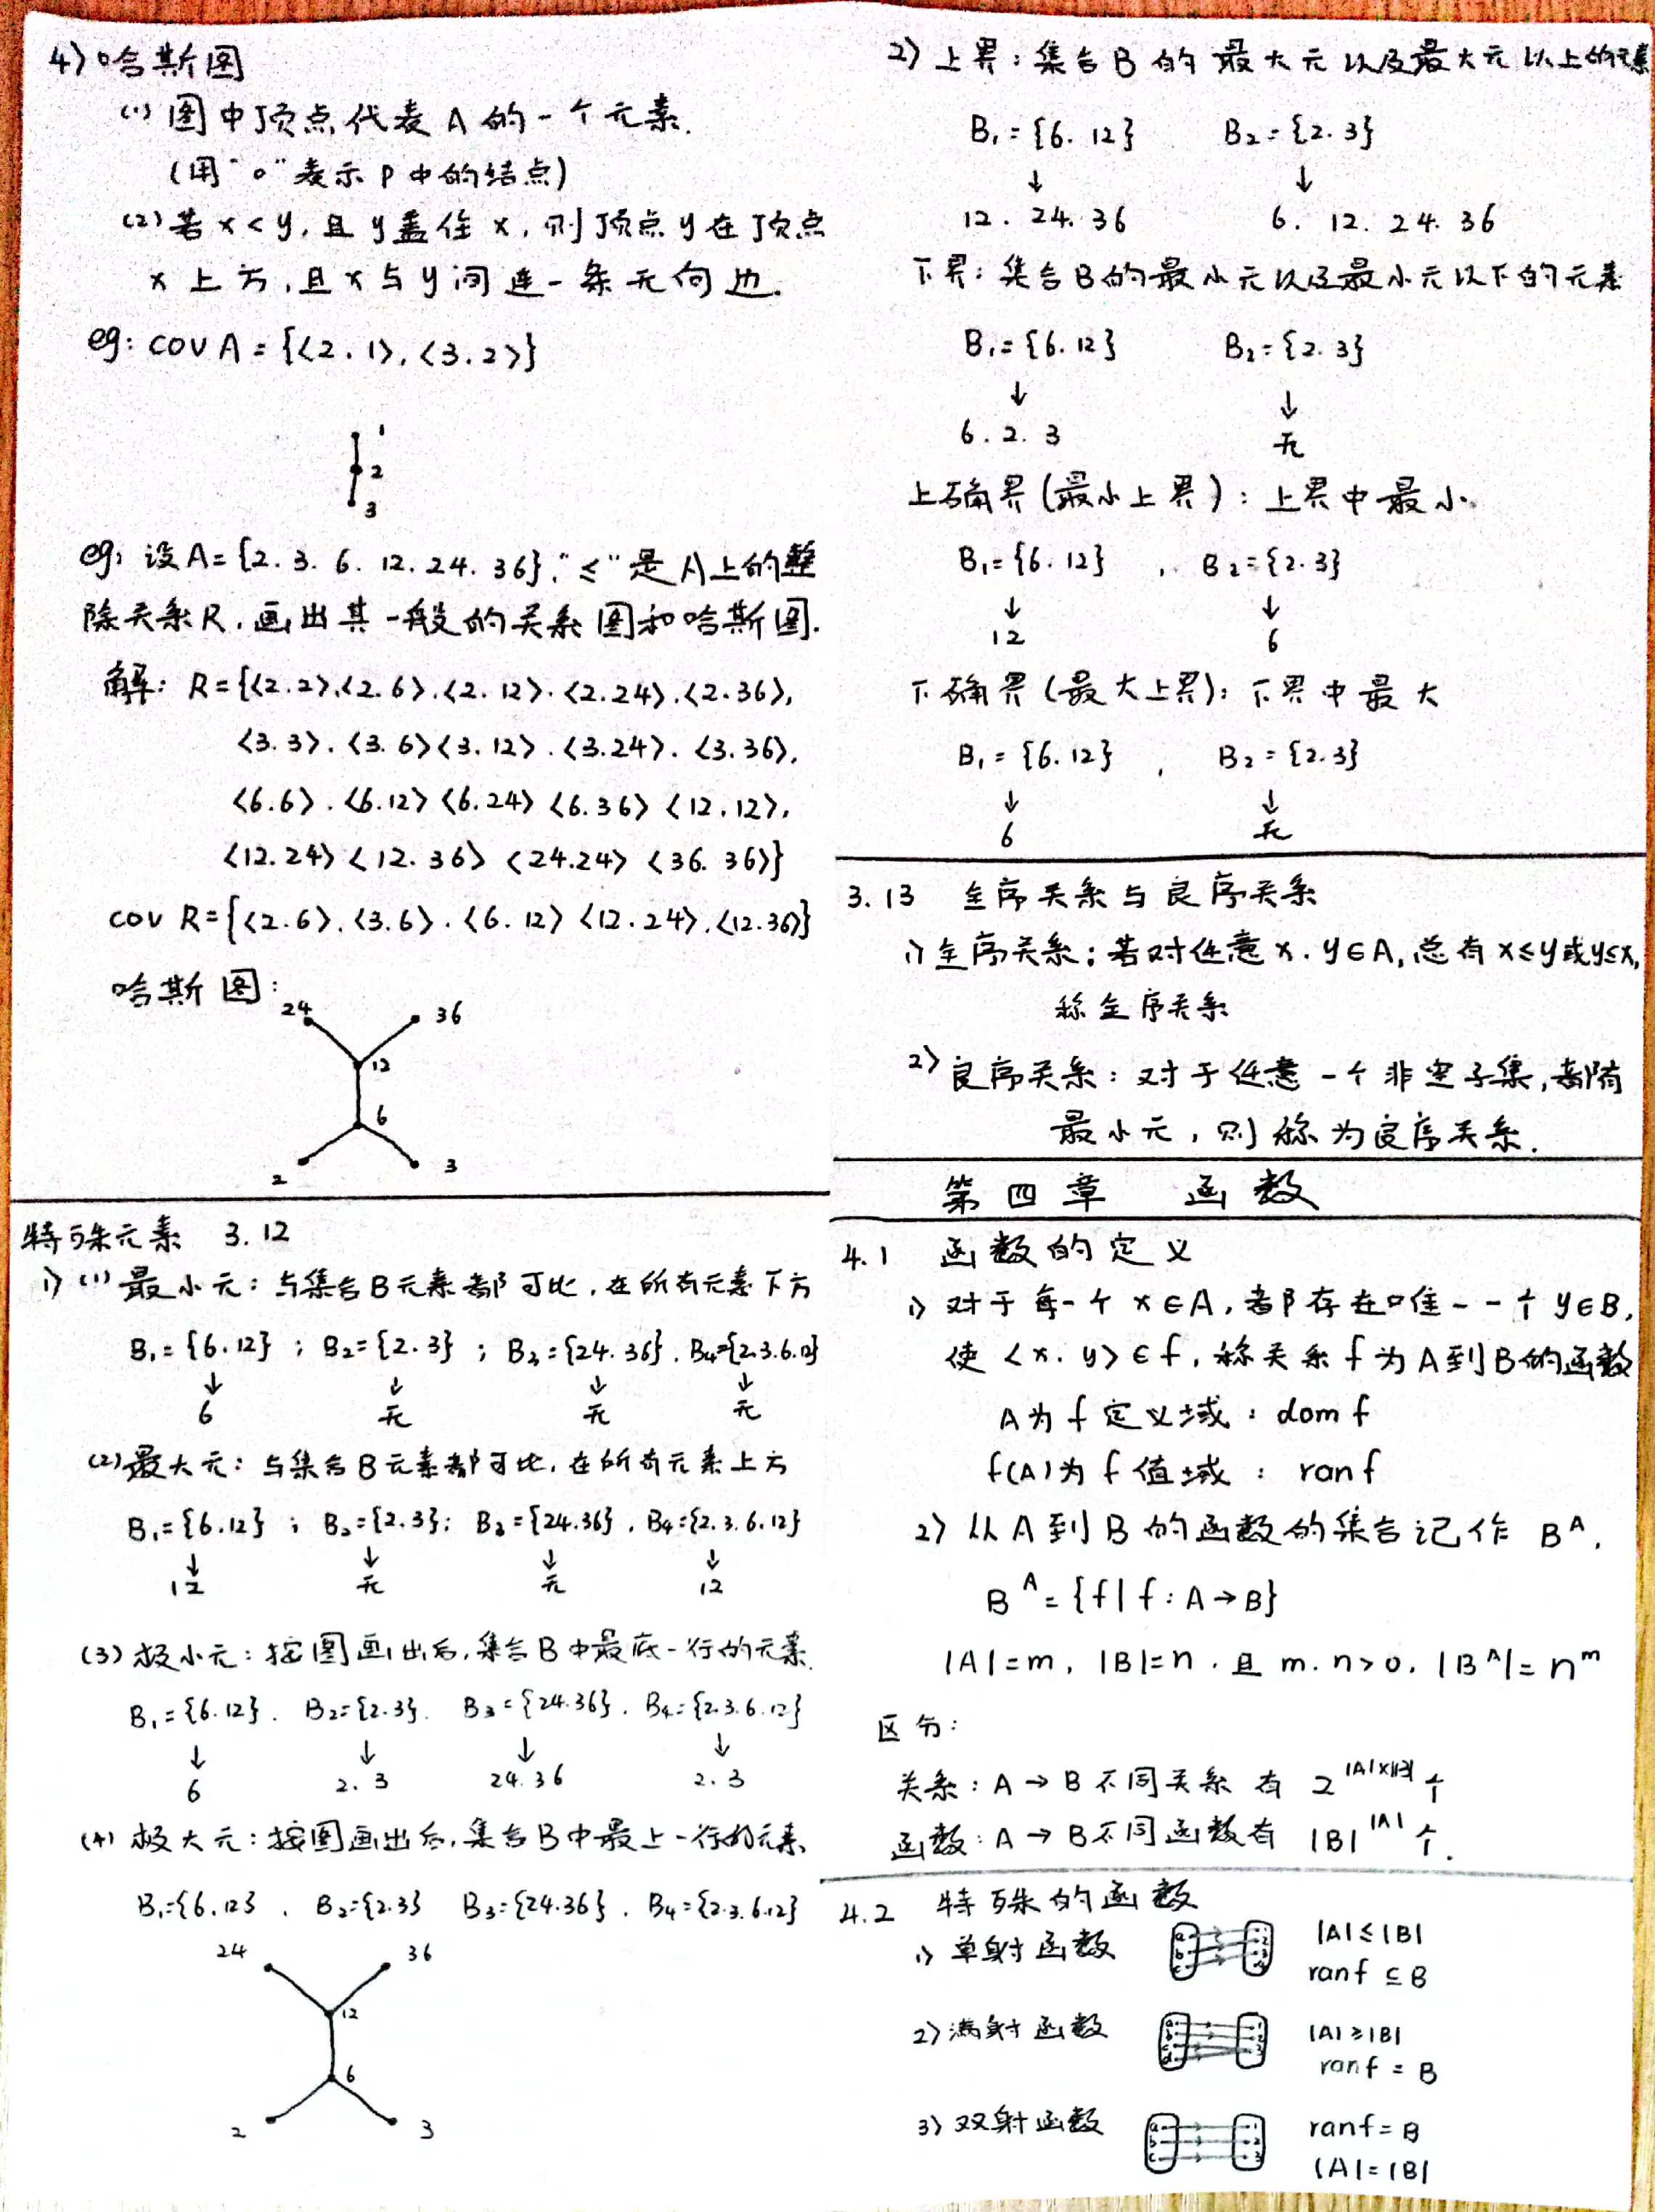 4) 哈斯图
(1) 图中顶点代表 A 的一个元素.
(用"o"表示 P 中的结点)
(2) 若 x < y, 且 y 盖住 x, 则顶点 y 在顶点
x 上方, 且 x 与 y 间连一条无向边.
eg: COV A = {<2.1>, <3.2>}
1
2
3
eg: 设 A = {2. 3. 6. 12. 24. 36}, "≤" 是 A 上的整
除关系 R, 画出其一般的关系图和哈斯图.
解: R = {<2.2>.<2.6>.<2.12>.<2.24>.<2.36>,
<3.3>. <3.6> <3.12>. <3.24>. <3.36>,
<6.6>. <6.12> <6.24> <6.36> <12.12>,
<12.24> <12.36> <24.24> <36.36>}
COV R = {<2.6>.<3.6>.<6.12> <12.24>.<12.36>}
哈斯图:
24 36
12
6
2 3
特殊元素 3.12
1) (1) 最小元: 与集合 B 元素都可比, 在所有元素下方
B₁ = {6.12} ; B₂ = {2.3} ; B₃ = {24.36}. B₄={2.3.6.12}
↓ ↓ ↓ ↓
6 无 无 无
(2) 最大元: 与集合 B 元素都可比, 在所有元素上方
B₁ = {6.12} ; B₂ = {2.3}; B₃ = {24.36}. B₄={2.3.6.12}
↓ ↓ ↓ ↓
12 无 无 12
(3) 极小元: 按图画出后, 集合 B 中最底一行的元素.
B₁ = {6.12}. B₂={2.3}. B₃ = {24.36}. B₄={2.3.6.12}
↓ ↓ ↓ ↓
6 2. 3 24. 36 2. 3
(4) 极大元: 按图画出后, 集合 B 中最上一行的元素.
B₁={6.12}. B₂={2.3} B₃={24.36}. B₄={2.3.6.12}
24 36
12
6
2 3
2) 上界: 集合 B 的最大元以及最大元以上的元素
B₁ = {6. 12} B₂ = {2. 3}
↓ ↓
12. 24. 36 6. 12. 24. 36
下界: 集合 B 的最小元以及最小元以下的元素
B₁ = {6.12} B₂ = {2. 3}
↓ ↓
6. 2. 3 无
上确界 (最小上界): 上界中最小.
B₁ = {6. 12} , B₂ = {2. 3}
↓ ↓
12 6
下确界 (最大上界): 下界中最大
B₁ = {6.12} , B₂ = {2.3}
↓ ↓
6 无
3.13 全序关系与良序关系
1) 全序关系: 若对任意 x. y∈A, 总有 x≤y 或 y≤x,
称全序关系
2) 良序关系: 对于任意一个非空子集, 都有
最小元, 则称为良序关系.
第四章 函数
4.1 函数的定义
1) 对于每一个 x∈A, 都存在唯一一个 y∈B,
使 <x. y> ∈ f, 称关系 f 为 A 到 B 的函数
A 为 f 定义域 : dom f
f(A) 为 f 值域 : ran f
2) 从 A 到 B 的函数的集合记作 Bᴬ.
Bᴬ = {f | f : A → B}
|A| = m, |B| = n. 且 m. n > 0. |Bᴬ| = nᵐ
区分:
关系: A → B 不同关系有 2^|A|x|B| 个
函数: A → B 不同函数有 |B|^|A| 个.
4.2 特殊的函数
1) 单射函数 a b c 1 2 3 4 |A| ≤ |B|
ranf ⊆ B
2) 满射函数 a b c d 1 2 3 |A| ≥ |B|
ranf = B
3) 双射函数 a b c 1 2 3 ranf = B
|A| = |B|